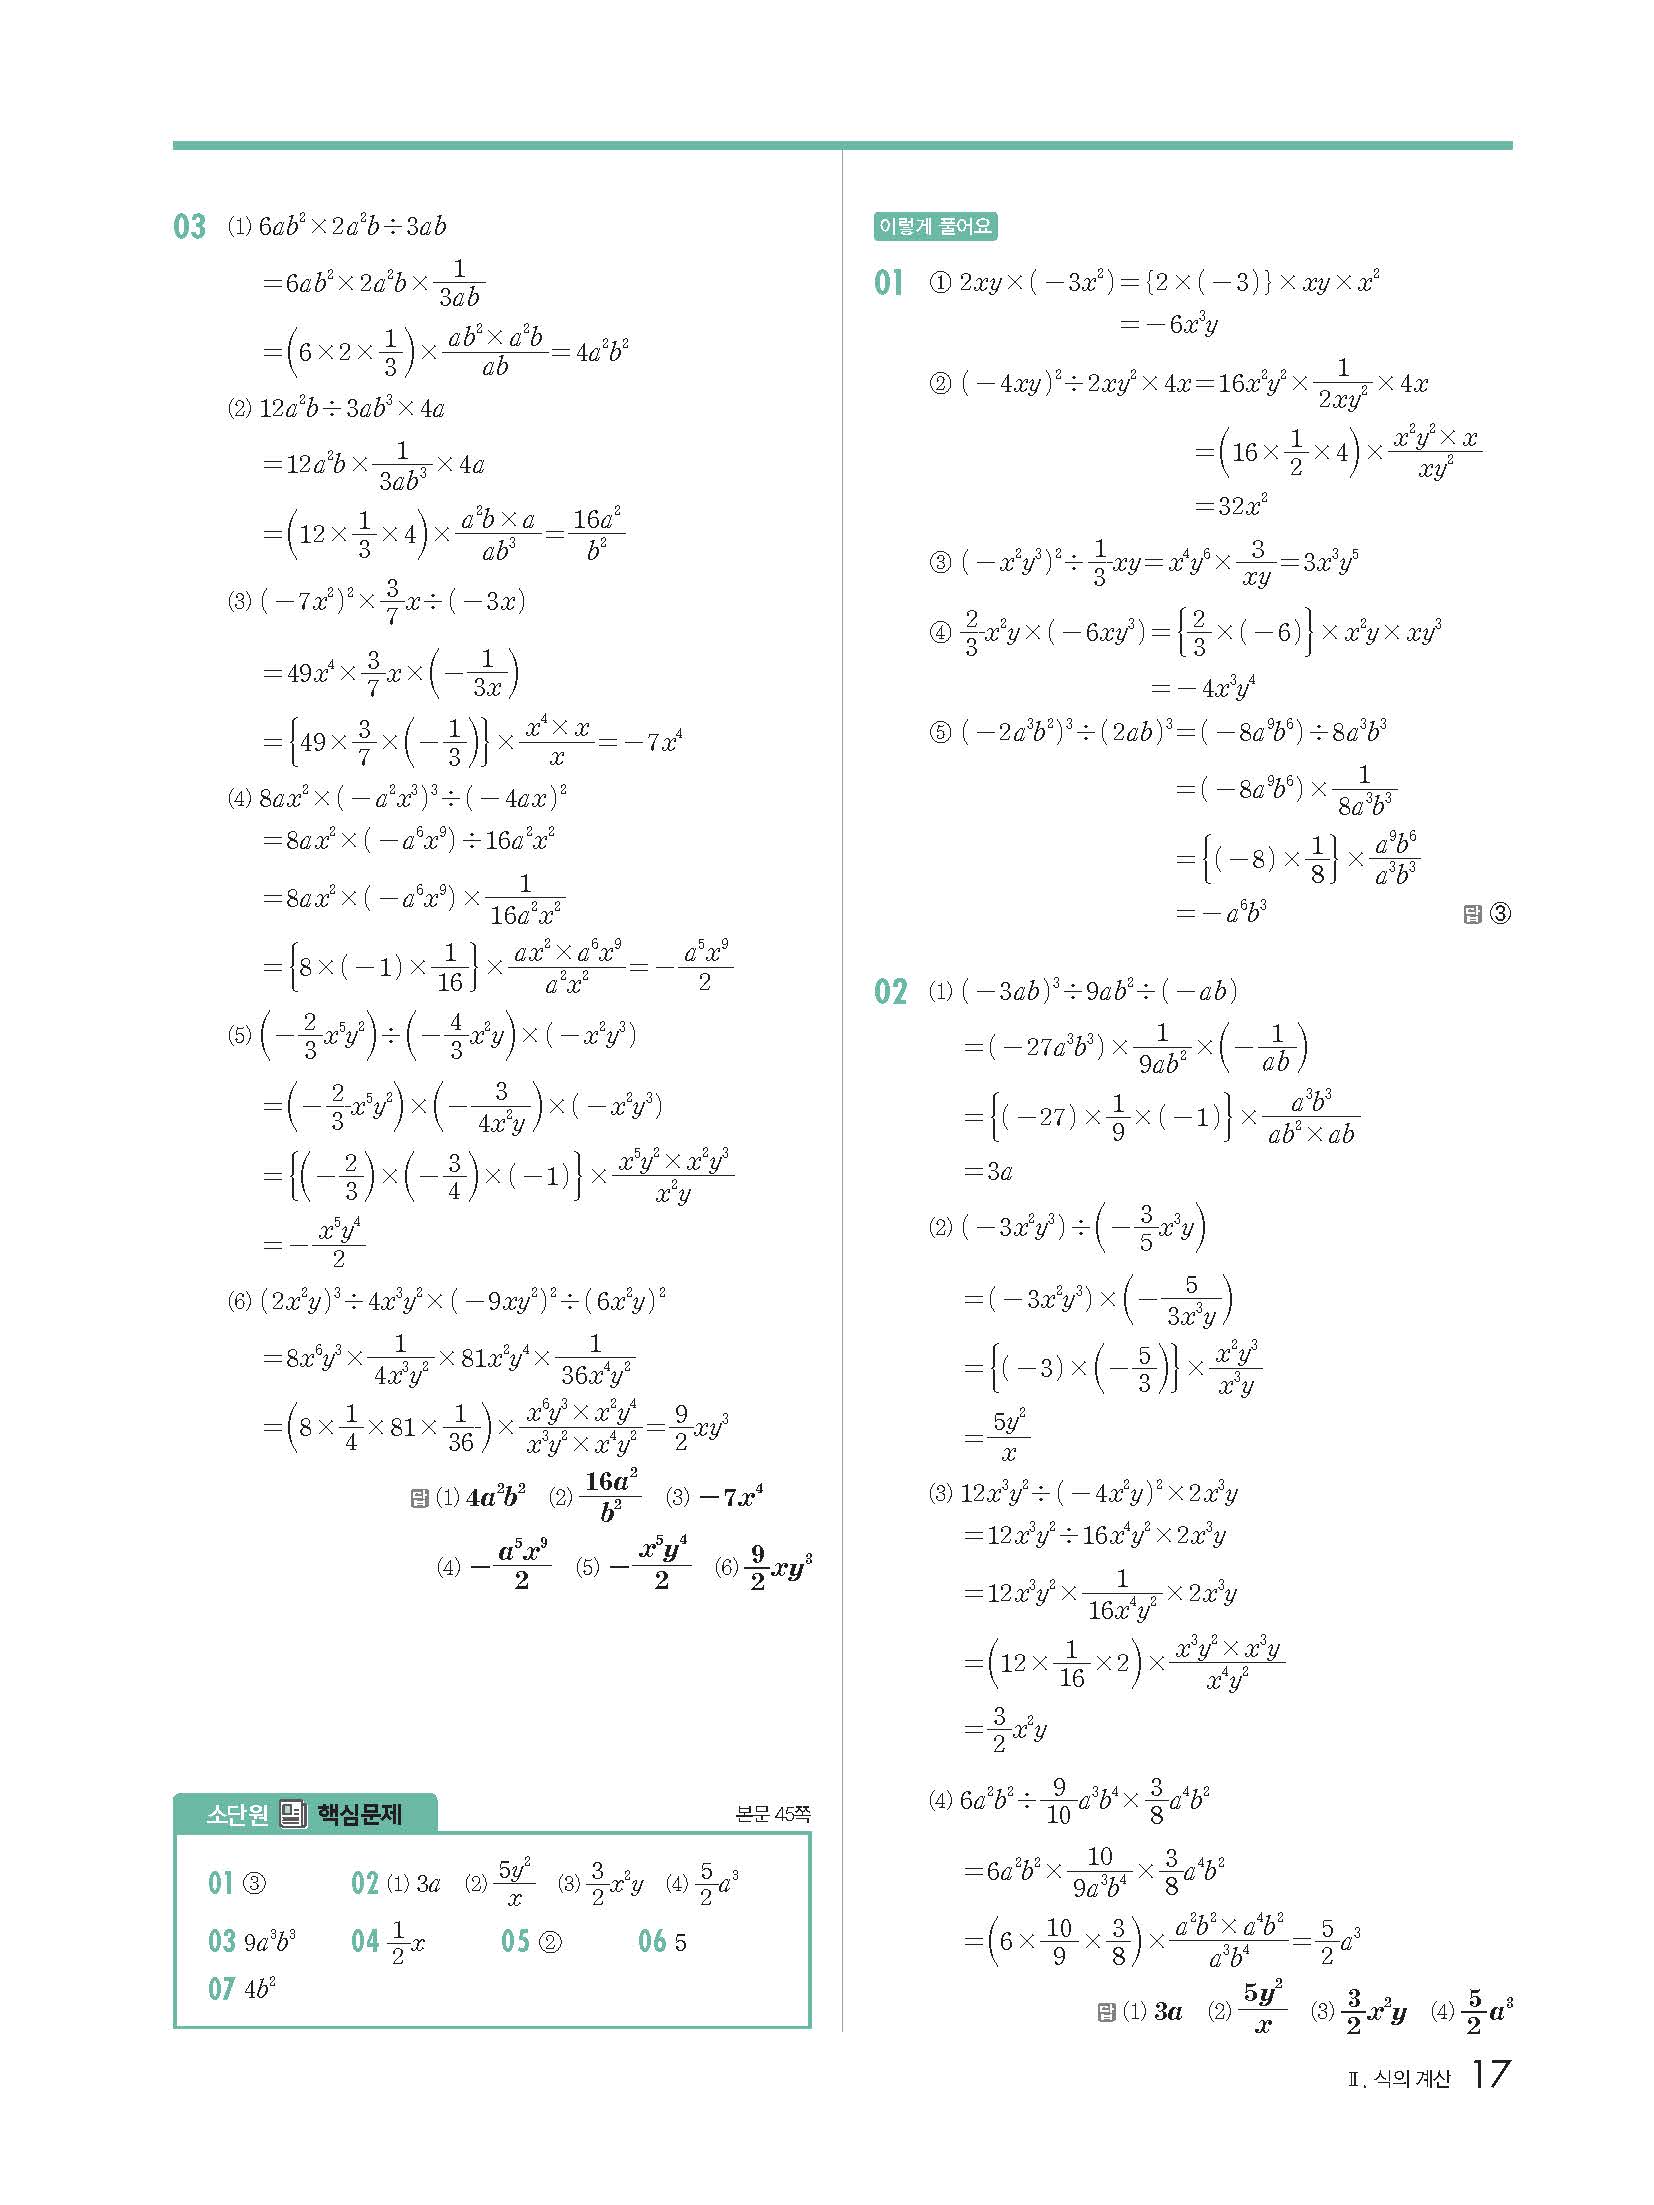 03 (1) 6ab²×2a²b÷3ab
=6ab²×2a²b×\frac{1}{3ab}
=(6×2×\frac{1}{3})×\frac{ab²×a²b}{ab}=4a²b²
(2) 12a²b÷3ab³×4a
=12a²b×\frac{1}{3ab³}×4a
=(12×\frac{1}{3}×4)×\frac{a²b×a}{ab³}=\frac{16a²}{b²}
(3) (-7x²)²×\frac{3}{7}x÷(-3x)
=49x⁴×\frac{3}{7}x×(-\frac{1}{3x})
={49×\frac{3}{7}×(-\frac{1}{3})}×\frac{x⁴×x}{x}=-7x⁴
(4) 8ax²×(-a²x³)³÷(-4ax)²
=8ax²×(-a⁶x⁹)÷16a²x²
=8ax²×(-a⁶x⁹)×\frac{1}{16a²x²}
={8×(-1)×\frac{1}{16}}×\frac{ax²×a⁶x⁹}{a²x²}=-\frac{a⁵x⁹}{2}
(5) (-\frac{2}{3}x⁵y²)÷(-\frac{4}{3}x²y)×(-x²y³)
=(-\frac{2}{3}x⁵y²)×(-\frac{3}{4x²y})×(-x²y³)
={(-\frac{2}{3})×(-\frac{3}{4})×(-1)}×\frac{x⁵y²×x²y³}{x²y}
=-\frac{x⁵y⁴}{2}
(6) (2x²y)³÷4x³y²×(-9xy²)²÷(6x²y)²
=8x⁶y³×\frac{1}{4x³y²}×81x²y⁴×\frac{1}{36x⁴y²}
=(8×\frac{1}{4}×81×\frac{1}{36})×\frac{x⁶y³×x²y⁴}{x³y²×x⁴y²}=\frac{9}{2}xy³
답 (1) 4a²b² (2) \frac{16a²}{b²} (3) -7x⁴
(4) -\frac{a⁵x⁹}{2} (5) -\frac{x⁵y⁴}{2} (6) \frac{9}{2}xy³
소단원 핵심문제 본문 45쪽
01 ③ 02 (1) 3a (2) \frac{5y²}{x} (3) \frac{3}{2}x²y (4) \frac{5}{2}a³
03 9a³b³ 04 \frac{1}{2}x 05 ② 06 5
07 4b²
이렇게 풀어요
01 ① 2xy×(-3x²)={2×(-3)}×xy×x²
=-6x³y
② (-4xy)²÷2xy²×4x=16x²y²×\frac{1}{2xy²}×4x
=(16×\frac{1}{2}×4)×\frac{x²y²×x}{xy²}
=32x²
③ (-x²y³)²÷\frac{1}{3}xy=x⁴y⁶×\frac{3}{xy}=3x³y⁵
④ \frac{2}{3}x²y×(-6xy³)={\frac{2}{3}×(-6)}×x²y×xy³
=-4x³y⁴
⑤ (-2a³b²)³÷(2ab)³=(-8a⁹b⁶)÷8a³b³
=(-8a⁹b⁶)×\frac{1}{8a³b³}
={(-8)×\frac{1}{8}}×\frac{a⁹b⁶}{a³b³}
=-a⁶b³ 답 ③
02 (1) (-3ab)³÷9ab²÷(-ab)
=(-27a³b³)×\frac{1}{9ab²}×(-\frac{1}{ab})
={(-27)×\frac{1}{9}×(-1)}×\frac{a³b³}{ab²×ab}
=3a
(2) (-3x²y³)÷(-\frac{3}{5}x³y)
=(-3x²y³)×(-\frac{5}{3x³y})
={(-3)×(-\frac{5}{3})}×\frac{x²y³}{x³y}
=\frac{5y²}{x}
(3) 12x³y²÷(-4x²y)²×2x³y
=12x³y²÷16x⁴y²×2x³y
=12x³y²×\frac{1}{16x⁴y²}×2x³y
=(12×\frac{1}{16}×2)×\frac{x³y²×x³y}{x⁴y²}
=\frac{3}{2}x²y
(4) 6a²b²÷\frac{9}{10}a³b⁴×\frac{3}{8}a⁴b²
=6a²b²×\frac{10}{9a³b⁴}×\frac{3}{8}a⁴b²
=(6×\frac{10}{9}×\frac{3}{8})×\frac{a²b²×a⁴b²}{a³b⁴}=\frac{5}{2}a³
답 (1) 3a (2) \frac{5y²}{x} (3) \frac{3}{2}x²y (4) \frac{5}{2}a³
Ⅱ. 식의 계산 17